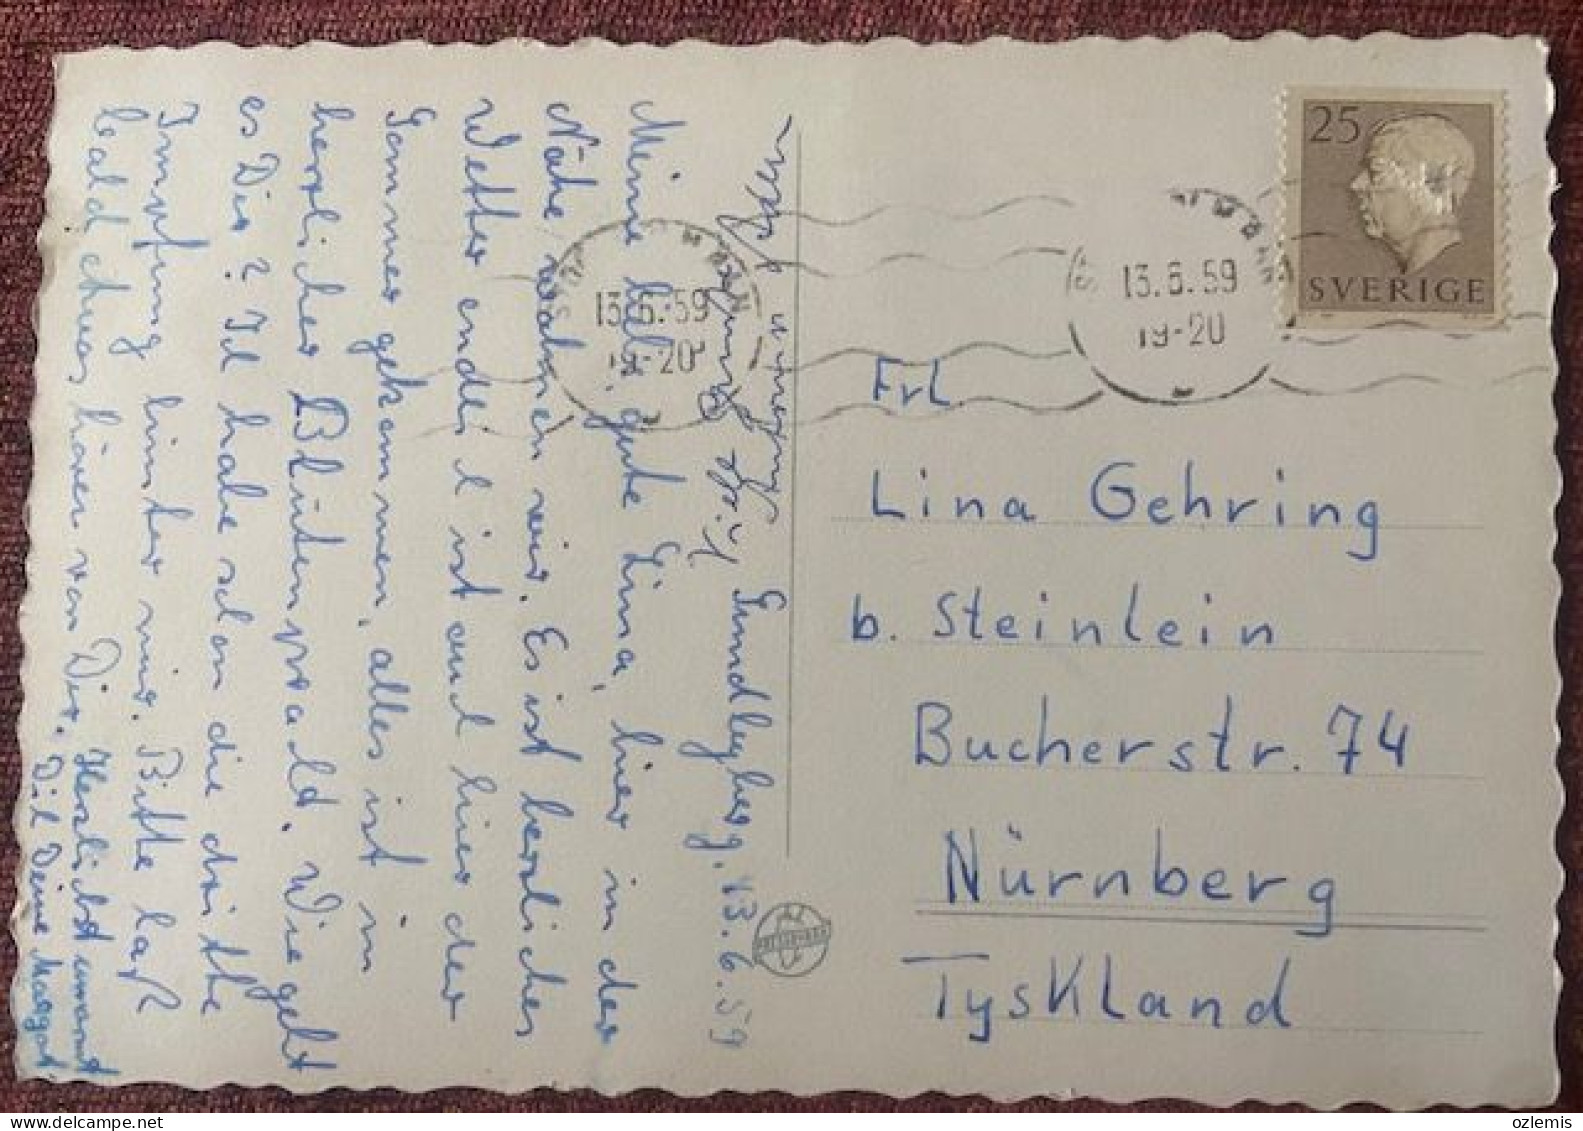 Sundbyberg, 13.6.59
Meine liebe, gute Lina, hier in der
Nähe wohnen wir. Es ist herrliches
Wetter endlich ist auch hier der
Sommer gekommen, alles ist in
herrlicher Blütenpracht. Wie geht
es Dir? Ich habe schon die dritte
Impfung hinter mir. Bitte laß
bald etwas hören von Dir.
Herzlichst umarmt
Dich Deine Margot.
25
SVERIGE
13.6.59
19-20
13.6.59
19-20
Frl.
Lina Gehring
b. Steinlein
Bucherstr. 74
Nürnberg
Tyskland
ozlemis